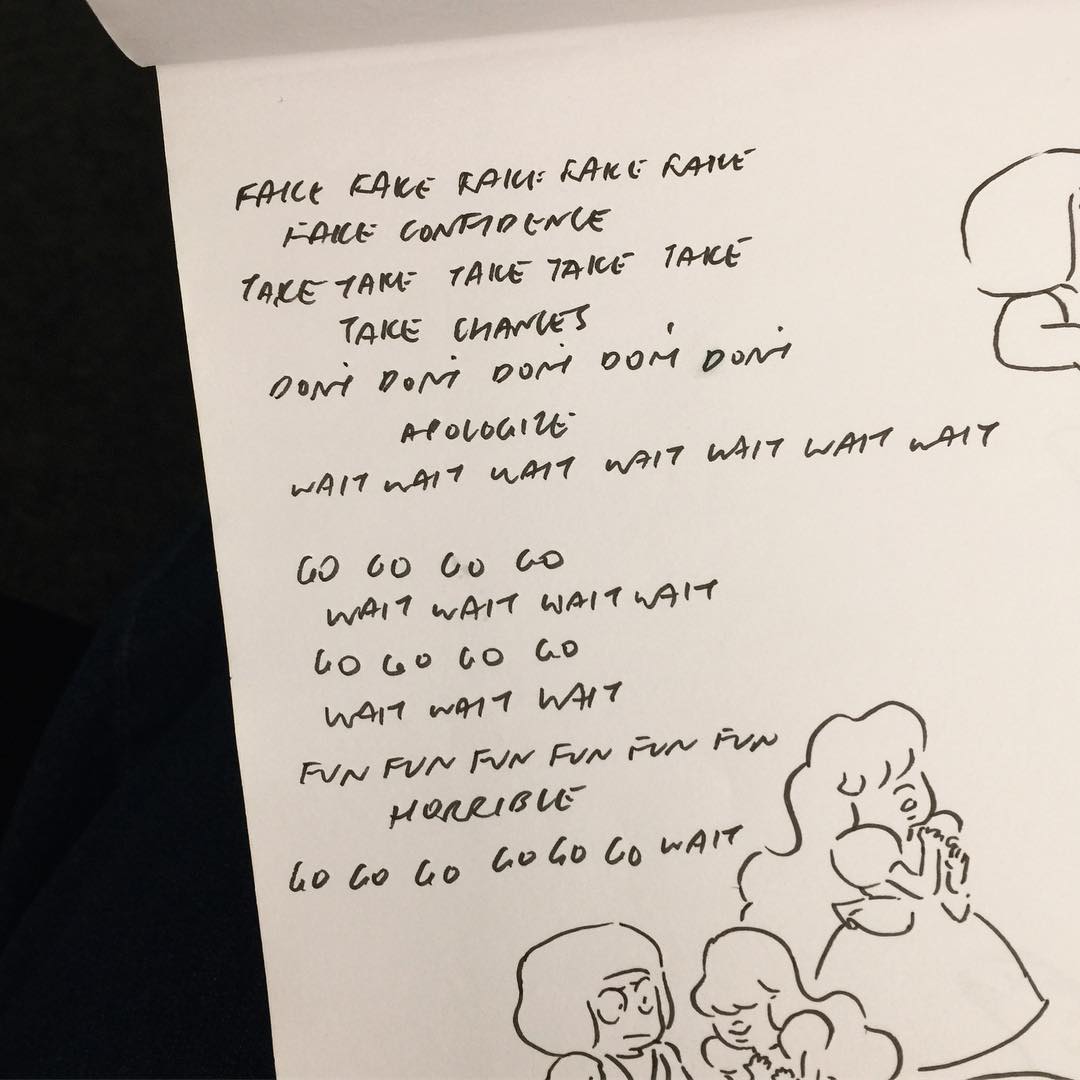 FAKE FAKE FAKE FAKE FAKE
FAKE CONFIDENCE
TAKE TAKE TAKE TAKE TAKE
TAKE CHANCES
DON'T DON'T DON'T DON'T DON'T
APOLOGIZE
WAIT WAIT WAIT WAIT WAIT WAIT WAIT
GO GO GO GO
WAIT WAIT WAIT WAIT
GO GO GO GO
WAIT WAIT WAIT
FUN FUN FUN FUN FUN
HORRIBLE
GO GO GO GO GO GO WAIT